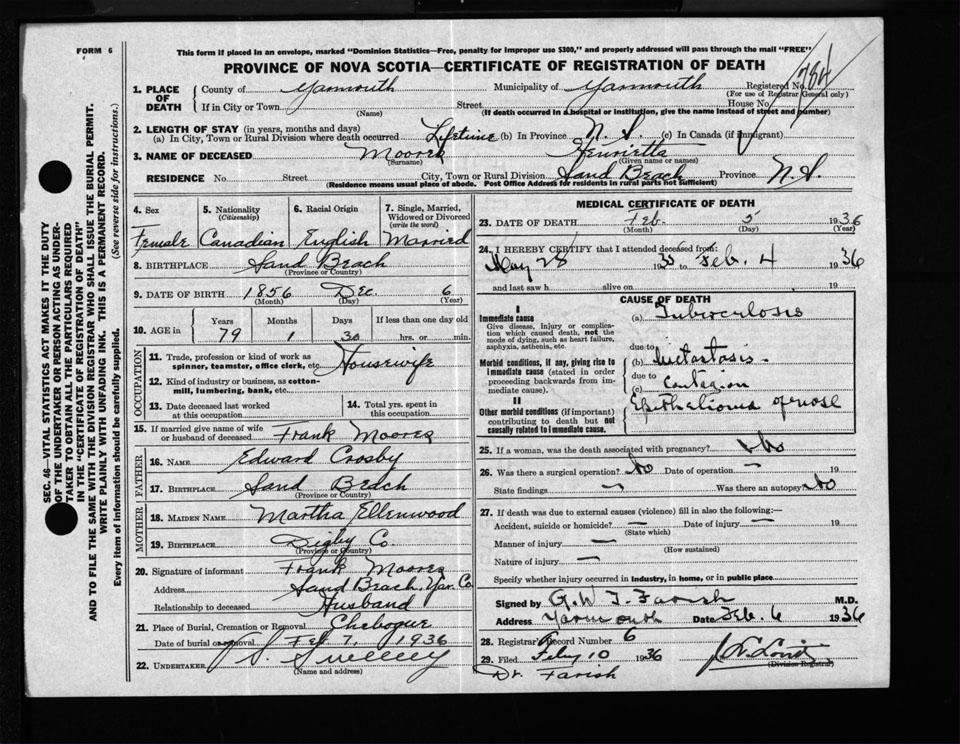 FORM 6
This form if placed in an envelope, marked "Dominion Statistics—Free, penalty for improper use $300," and properly addressed will pass through the mail "FREE"
PROVINCE OF NOVA SCOTIA—CERTIFICATE OF REGISTRATION OF DEATH
SEC. 46—VITAL STATISTICS ACT MAKES IT THE DUTY
OF THE UNDERTAKER OR PERSON ACTING AS UNDER-
TAKER TO OBTAIN ALL THE PARTICULARS REQUIRED
IN THE "CERTIFICATE OF REGISTRATION OF DEATH"
AND TO FILE THE SAME WITH THE DIVISION REGISTRAR WHO SHALL ISSUE THE BURIAL PERMIT.
WRITE PLAINLY WITH UNFADING INK. THIS IS A PERMANENT RECORD.
Every item of information should be carefully supplied. (See reverse side for instructions.)
1. PLACE OF DEATH County of Yarmouth Municipality of Yarmouth Registered No. 784
(For use of Registrar General only)
If in City or Town Street House No.
(Name) (If death occurred in a hospital or institution, give the name instead of street and number)
2. LENGTH OF STAY (in years, months and days)
(a) In City, Town or Rural Division where death occurred Lifetime (b) In Province N. S. (c) In Canada (if immigrant)
3. NAME OF DECEASED Moores Henrietta
(Surname) (Given name or names)
RESIDENCE No. Street City, Town or Rural Division Sand Beach Province N.S.
(Residence means usual place of abode. Post Office Address for residents in rural parts not Sufficient)
4. Sex 5. Nationality (Citizenship) 6. Racial Origin 7. Single, Married, Widowed or Divorced (write the word)
Female Canadian English Married
8. BIRTHPLACE Sand Beach
(Province or Country)
9. DATE OF BIRTH 1856 Dec. 6
(Month) (Day) (Year)
10. AGE in Years Months Days If less than one day old
79 1 30 hrs. or min.
OCCUPATION
11. Trade, profession or kind of work as spinner, teamster, office clerk, etc. Housewife
12. Kind of industry or business, as cotton-mill, lumbering, bank, etc.
13. Date deceased last worked at this occupation
14. Total yrs. spent in this occupation
15. If married give name of wife or husband of deceased Frank Moores
FATHER
16. NAME Edward Crosby
17. BIRTHPLACE Sand Beach
(Province or Country)
MOTHER
18. MAIDEN NAME Martha Ellenwood
19. BIRTHPLACE Digby Co.
(Province or Country)
20. Signature of informant Frank Moores
Address Sand Beach, Yar. Co.
Relationship to deceased Husband
21. Place of Burial, Cremation or Removal Chebogue
Date of burial or removal Feb 7, 1936
22. UNDERTAKER Sweeney
(Name and address)
MEDICAL CERTIFICATE OF DEATH
23. DATE OF DEATH Feb. 5 1936
(Month) (Day) (Year)
24. I HEREBY CERTIFY that I attended deceased from:
May 28 1935 to Feb. 4 1936
and last saw h alive on 19
CAUSE OF DEATH
Immediate cause (a) Tuberculosis
Give disease, injury or complication which caused death, not the mode of dying, such as heart failure, asphyxia, asthenia, etc.
due to
Morbid conditions, if any, giving rise to immediate cause (stated in order proceeding backwards from immediate cause).
(b) Metastasis -
due to
(c) Contagion
II
Other morbid conditions (if important) contributing to death but not causally related to immediate cause.
Epithelioma of nose
25. If a woman, was the death associated with pregnancy? No
26. Was there a surgical operation? No Date of operation — 19
State findings — Was there an autopsy? No
27. If death was due to external causes (violence) fill in also the following:—
Accident, suicide or homicide? — Date of injury — 19
(State which)
Manner of injury —
(How sustained)
Nature of injury —
Specify whether injury occurred in industry, in home, or in public place
Signed by G. W. T. Farish M.D.
Address Yarmouth Date Feb. 6 1936
28. Registrar's Record Number 6
29. Filed Feby 10 1936
(Division Registrar)
Dr. Farish